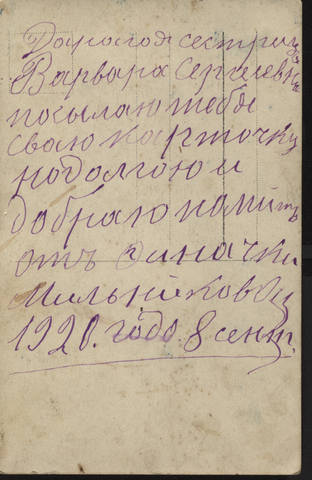 Дарагая сестрица
Варвара Сергеевна
посылаю тебе
сваю карточку
надолгою и
добраю память
отъ Зиначки
Мильниковой
1920. года 8 сент.